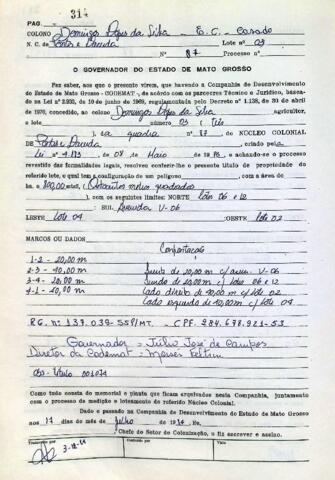 PAG. 314
COLONO Domingos Alves da Silva - E. C. - Casado
N. C. de Pontes e Lacerda Lote nº 03
Processo nº 87
O GOVERNADOR DO ESTADO DE MATO GROSSO
Faz saber, aos que o presente virem, que havendo a Companhia de Desenvolvimento
do Estado de Mato Grosso - CODEMAT -, de acordo com os pareceres Técnico e Jurídico, baseados
na Lei nº 2.930, de 10 de junho de 1969, regulamentada pelo Decreto nº 1.138, de 30 de abril
de 1970, concedido, ao colono Domingos Alves da Silva agricultor,
lote número 03 - Três
, na quadra nº 17 do NÚCLEO COLONIAL
DE Pontes e Lacerda, criado pela
Lei nº 4.193 de 08 de Maio de 19, e achando-se o processo
revestido das formalidades legais, resolveu conferir-lhe o presente título de propriedade do
referido lote, o qual tem a configuração de um polígono, com a área de
ha 800,00 mts² (Oitocentos metros quadrados
), com os seguintes limites: NORTE Lote 06 e 12
SUL Avenida V-06
LESTE Lote 04 OESTE Lote 02
MARCOS OU DADOS
Confrontações
1-2 - 20,00 m
2-3 - 40,00 m Frente de 20,00 m c/ aven. V-06
3-4 - 20,00 m Fundo de 20,00 m c/ lotes 06 e 12
4-1 - 40,00 m Lado direito de 40,00 m c/ lote 02
Lado esquerdo de 40,00 m c/ lote 04
R.G. nº 139.039 - SSP/MT. - CPF. 284.678.921-53
Governador = Júlio José de Campos
Diretor da Codemat =
Obs - título 001071
Como tudo consta do memorial e planta que ficam arquivados nesta Companhia, juntamente
com o processo de medição e loteamento do referido Núcleo Colonial.
Dado e passado na Companhia de Desenvolvimento do Estado de Mato Grosso
aos 17 dias do mês de julho de 1984. Eu,
Chefe do Setor de Colonização, o fiz escrever e assino.
Transcrito por Conferido por Visto
3-12-84